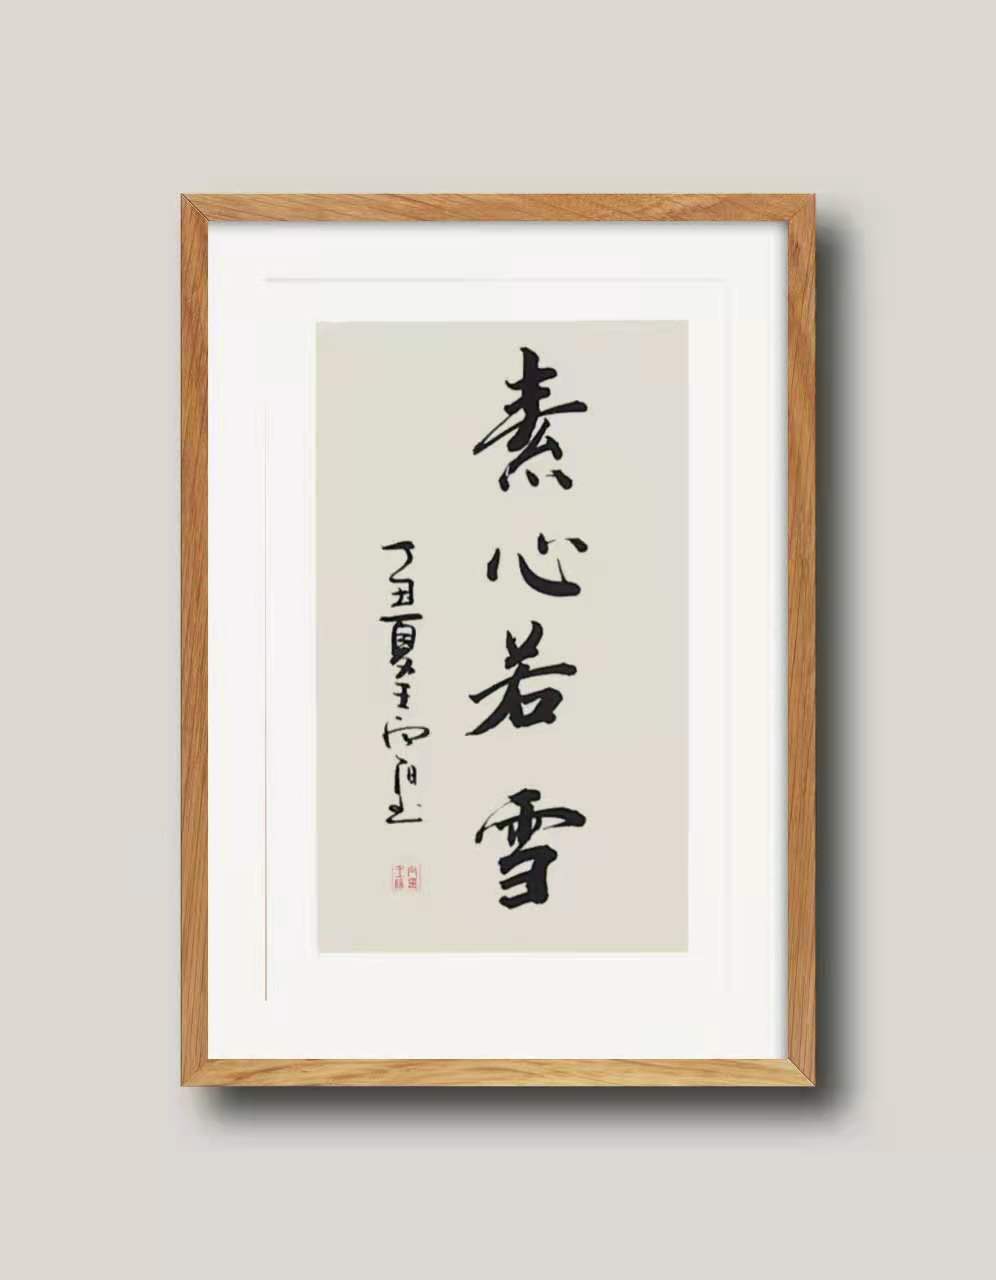 素心若雪
丁丑夏王向阳书